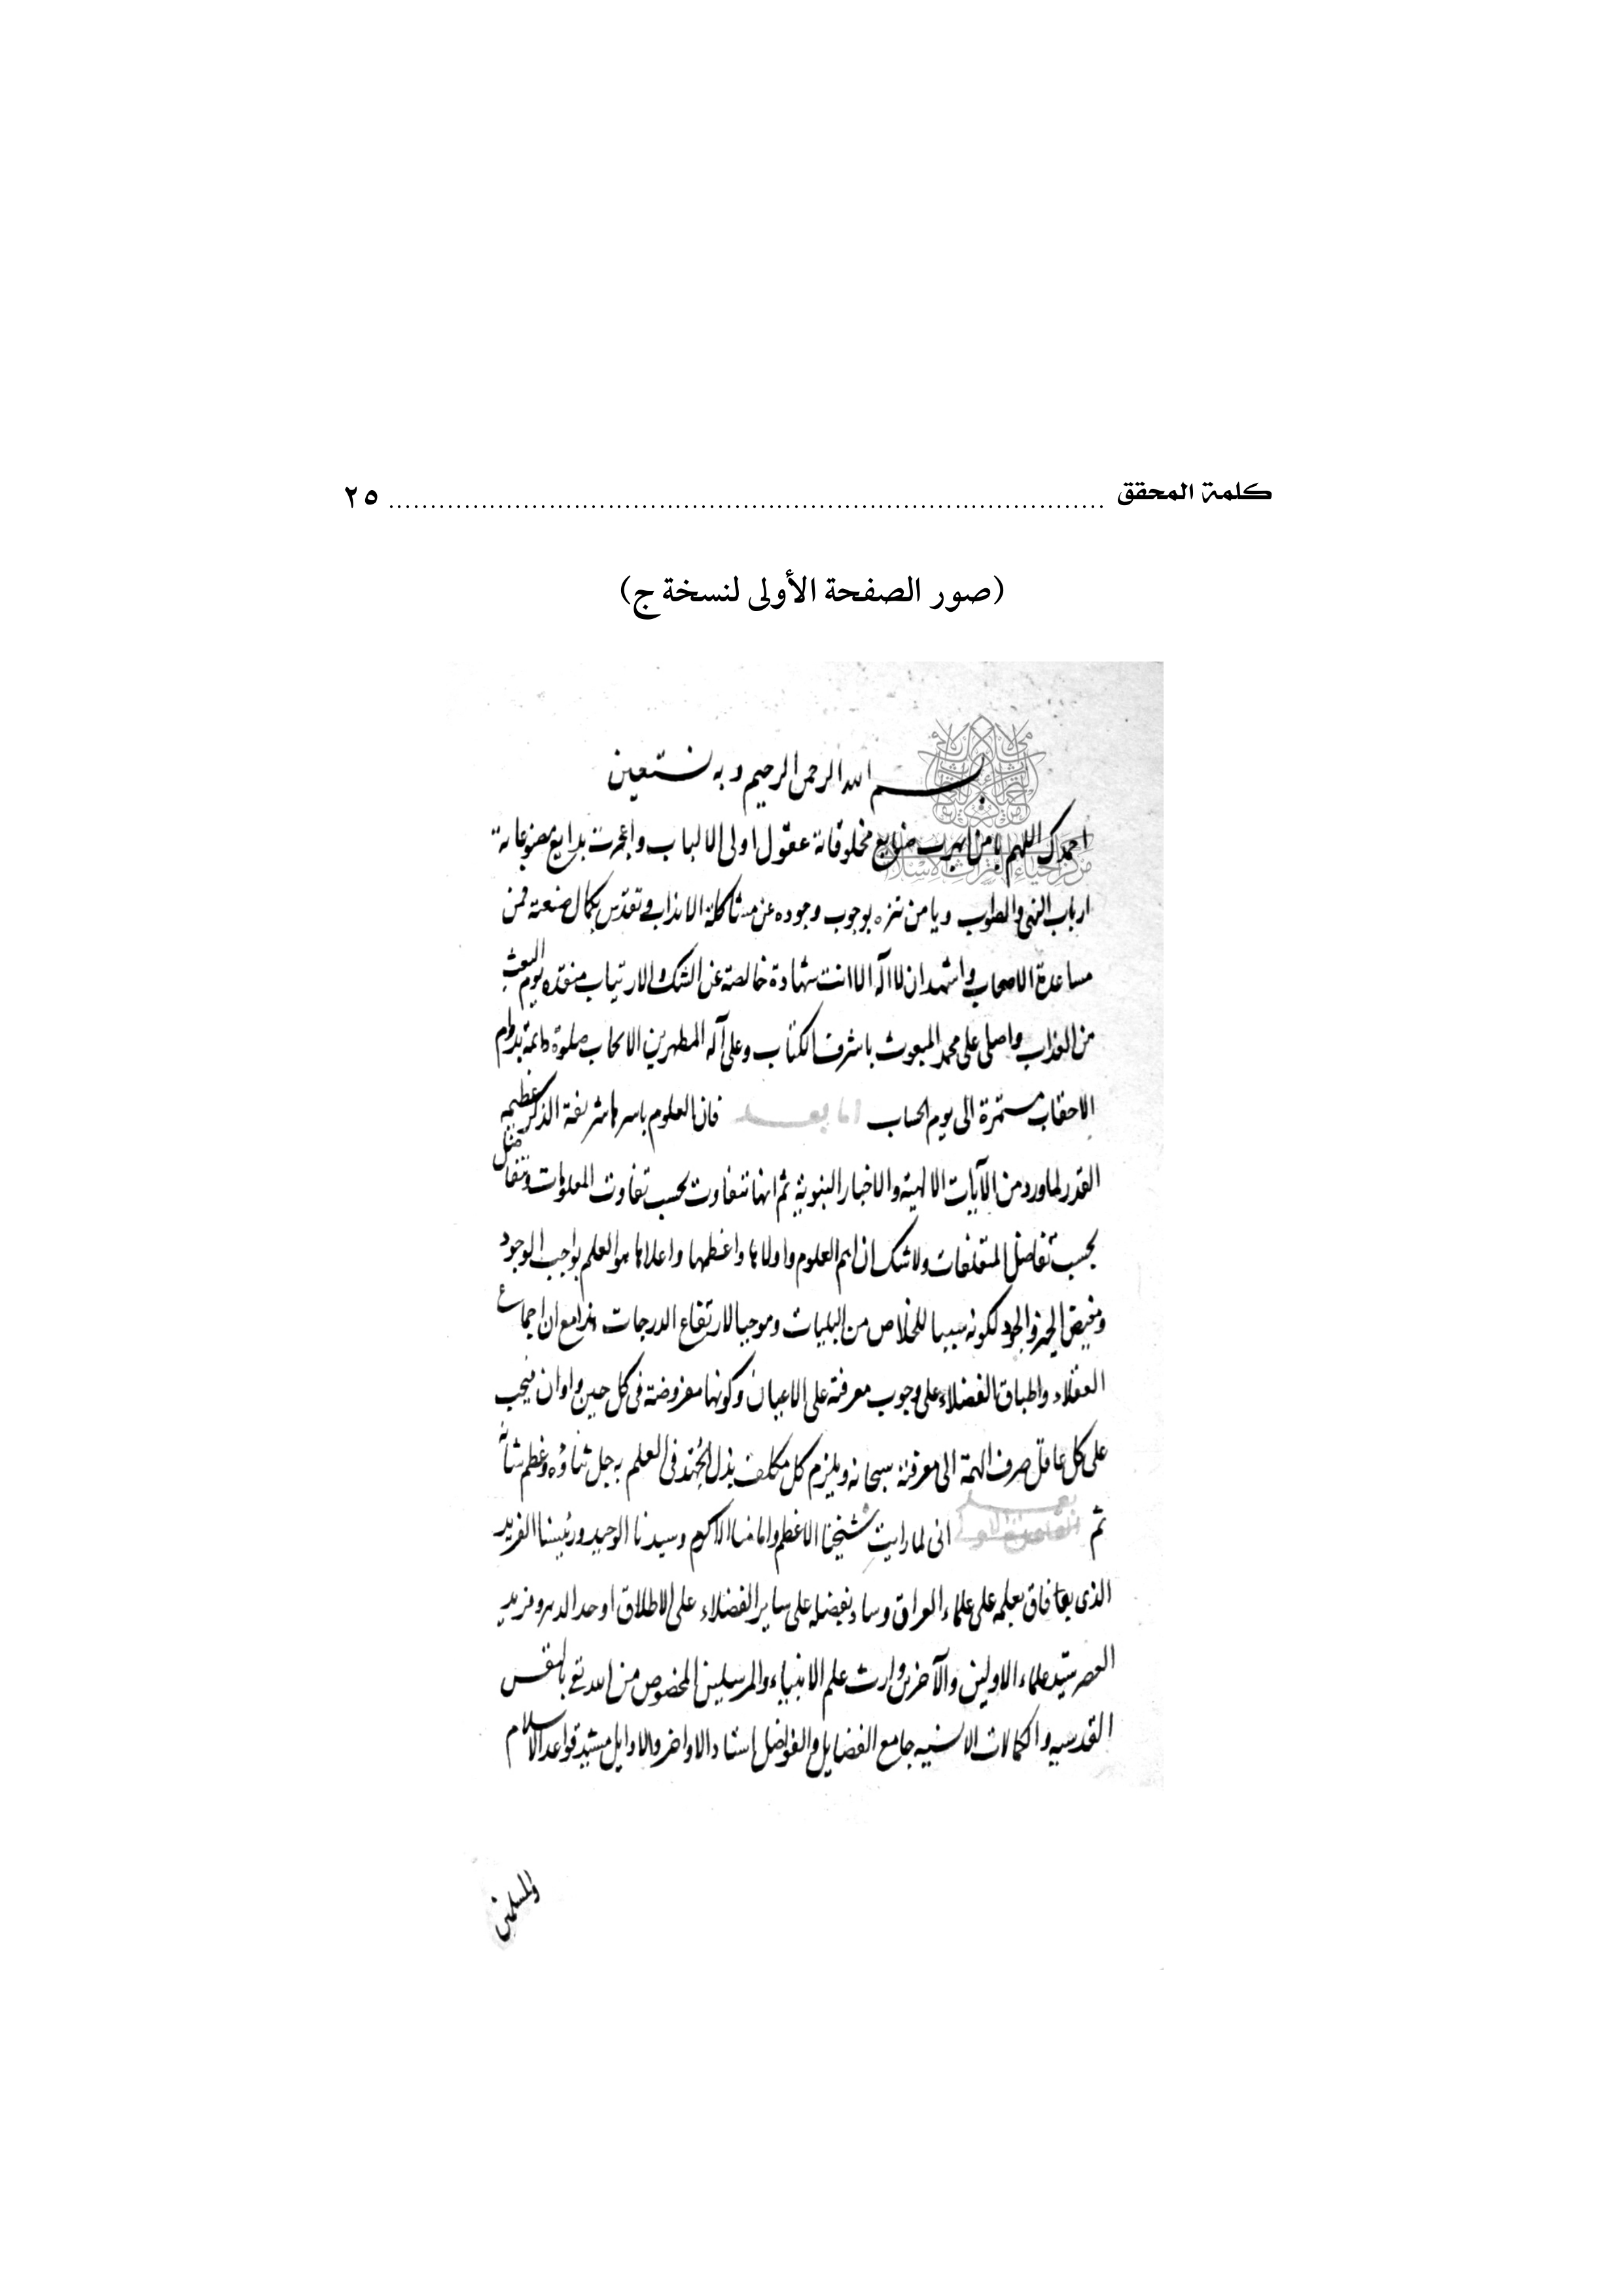 كلمة المحقق ........ ٢٥
(صور الصفحة الأولى لنسخة ج)
بسم الله الرحمن الرحيم وبه نستعين
احمدك اللهم يا من ابهرت صنايع مخلوقاته عقول اولى الالباب واعجزت بدايع مصنوعاته
ارباب النهى والطوب ويا من تنزه بوجوب وجوده عن مشاكلة الانداب وتقدس بكمال صنعته عن
مساعدة الاصحاب واشهد ان لا اله الا انت شهادة خالصة عن الشك والارتياب منقذه يوم البعث
من العذاب واصلى على محمد المبعوث باشرف الكتاب وعلى آله المطهرين الانجاب صلوة دائمة بدوام
الاحقاب مستمرة الى يوم الحساب اما بعد فان العلوم باسرها شريفة الذكر عظيمة
القدر لما ورد من الآيات الالهية والاخبار النبوية ثم انها تتفاوت بحسب تفاوت المعلومات وتتفاضل
بحسب تفاضل المتعلقات ولا شك ان اهم العلوم واولاها واعظمها واعلاها هو العلم بواجب الوجود
ومفيض الخير والجود لكونه سببا للخلاص من البليات وموجبا لارتفاع الدرجات هذا مع ان اجماع
العقلاء واطباق الفضلاء على وجوب معرفته على الاعيان وكونها مفروضة فى كل حين واوان فيجب
على كل عاقل صرف الهمة الى معرفته سبحانه ويلزم كل مكلف بذل الجهد فى العلم به جل ثناؤه وعظم شانه
ثم انى لما رايت شيخنا الاعظم وامامنا الاكرم وسيدنا الوحيد ورئيسنا الفريد
الذى فاق بعلمه على علماء العراق وساد بفضله على ساير الفضلاء على الاطلاق اوحد الدهر وفريد
العصر سيد علماء الاولين والآخرين وارث علم الانبياء والمرسلين المخصوص من الله تع بالنفس
القدسيه والكمالات الانسيه جامع الفضايل والفواضل استاد الاواخر والاوايل مشيد قواعد الاسلام
والمسلمين